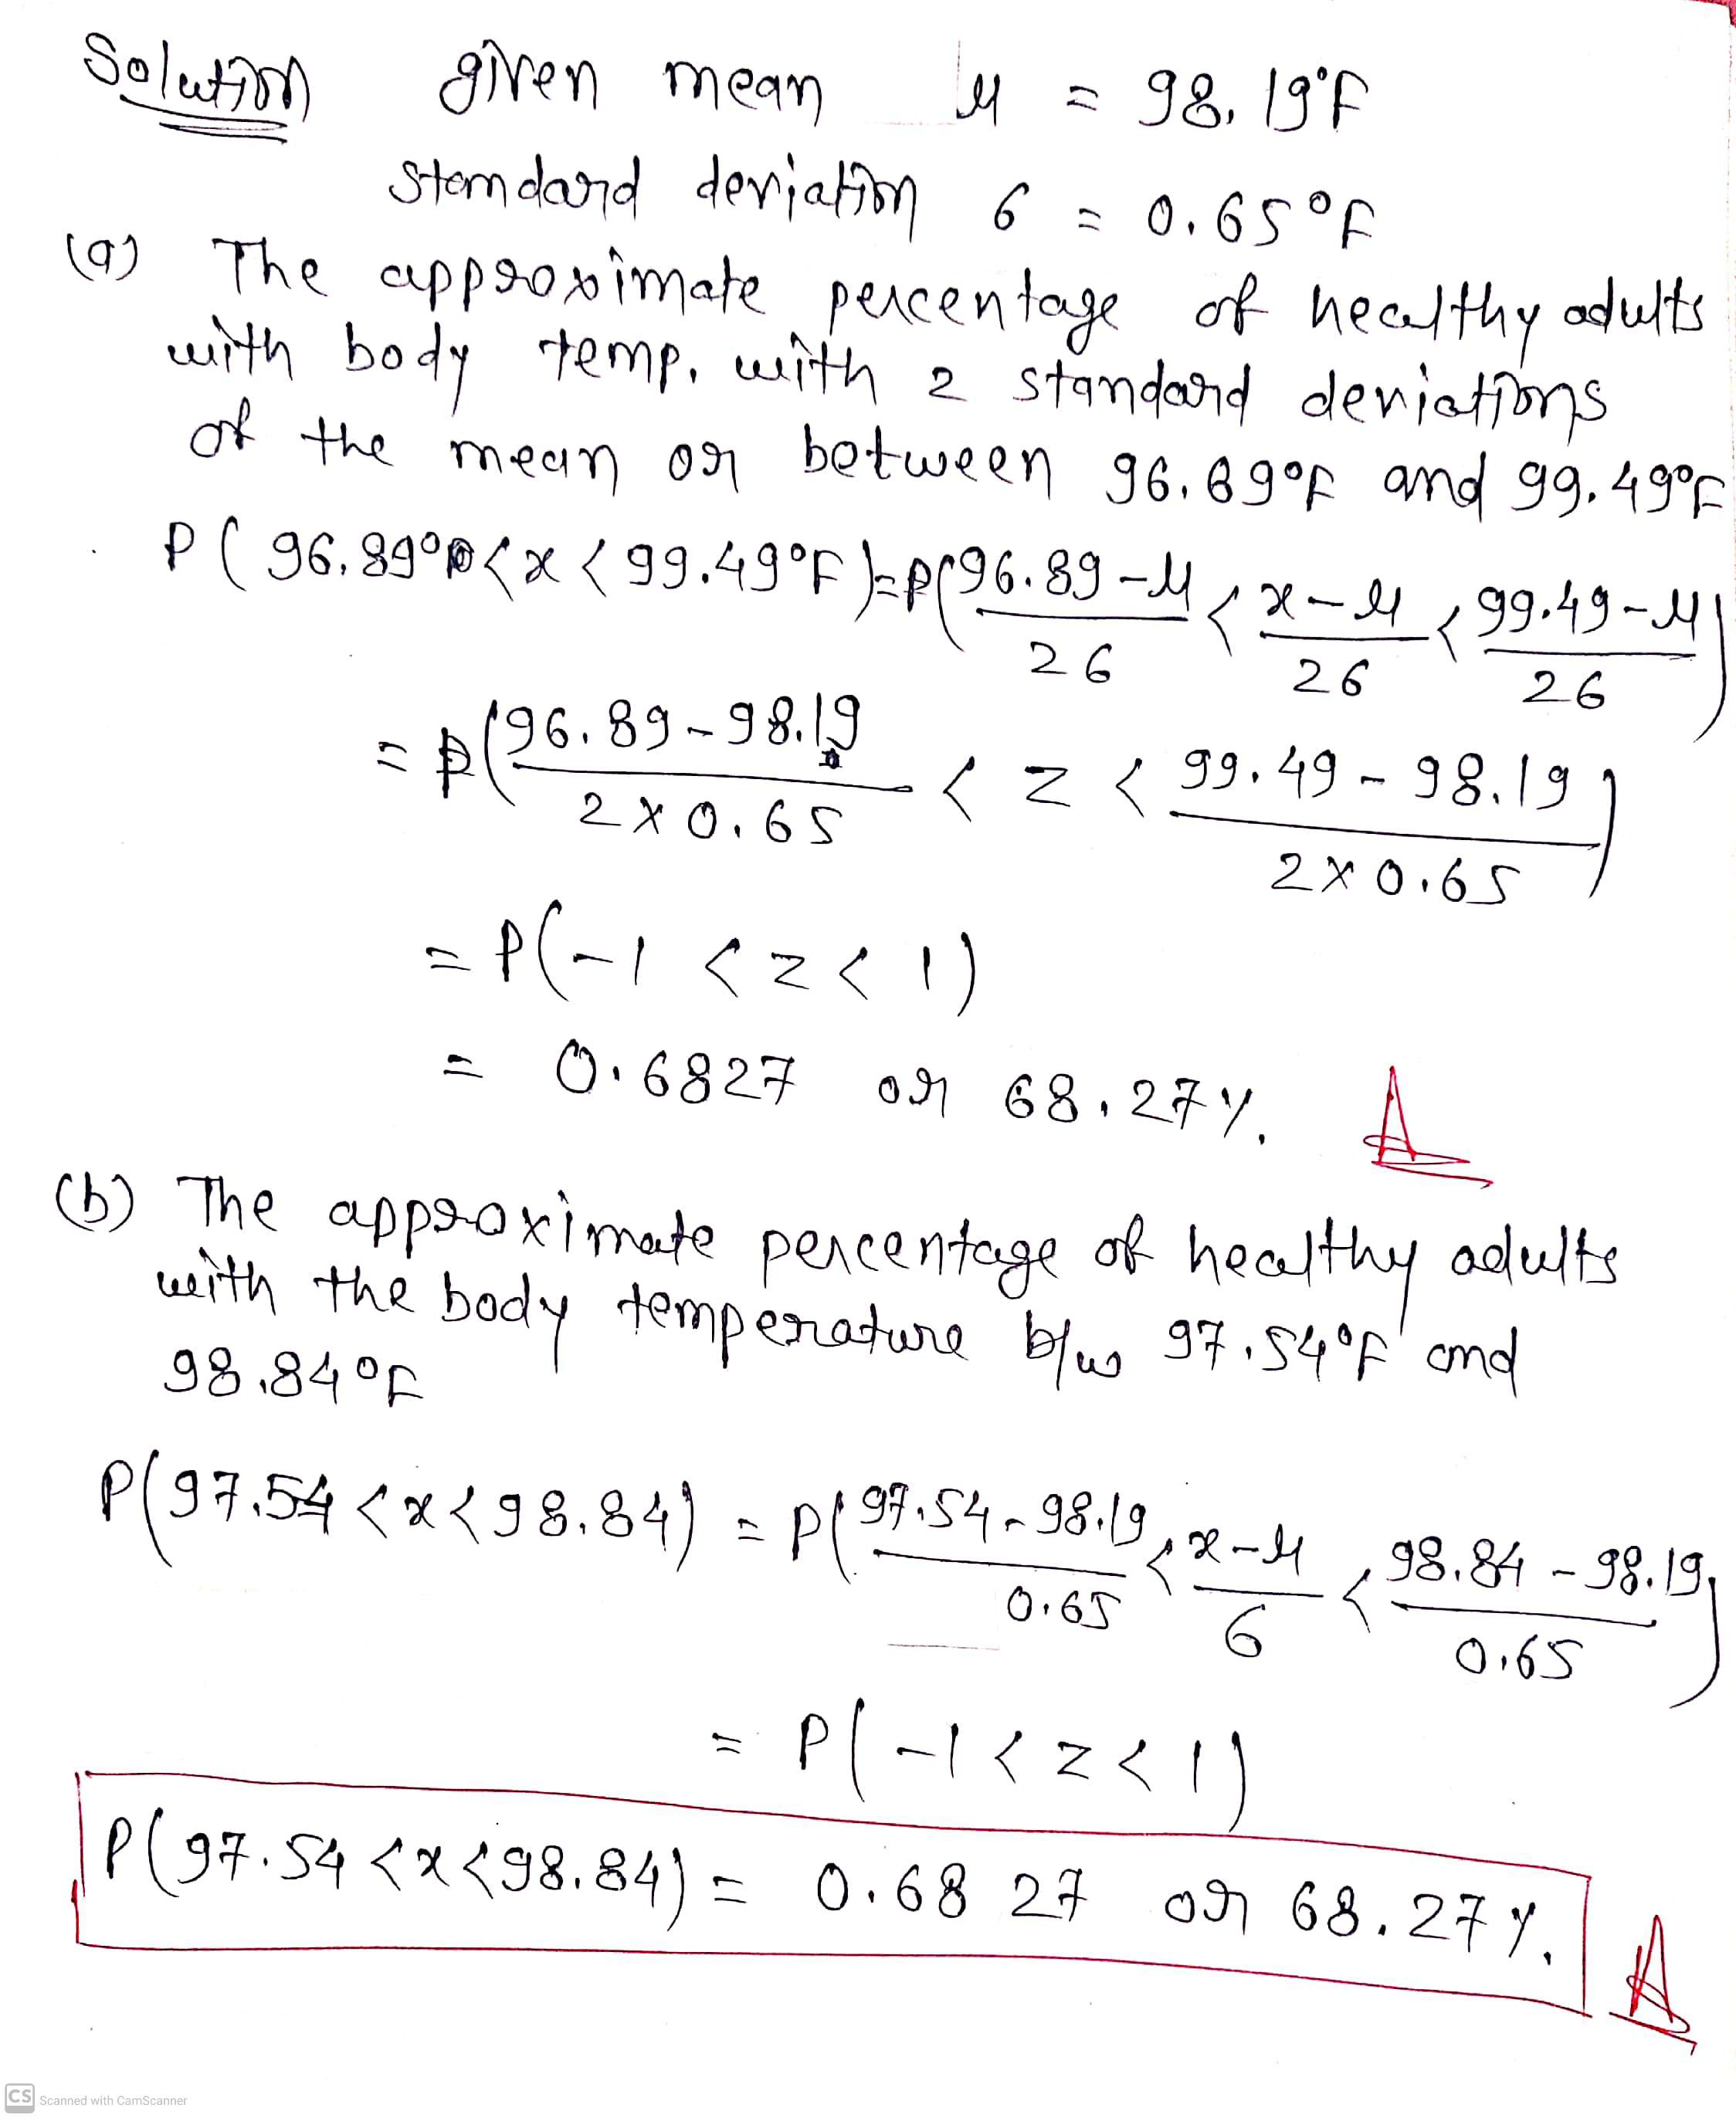 Solution given mean μ = 98.19°F
standard deviation σ = 0.65°F
(a) The approximate percentage of healthy adults
with body temp. with 2 standard deviations
of the mean or between 96.89°F and 99.49°F
P(96.89°F<x<99.49°F)=P(96.89-μ/2σ < x-μ/2σ < 99.49-μ/2σ)
= P(96.89-98.19/2×0.65 < z < 99.49-98.19/2×0.65)
= P(-1 < z < 1)
= 0.6827 or 68.27%. A
(b) The approximate percentage of healthy adults
with the body temperature b/w 97.54°F and
98.84°F
P(97.54<x<98.84) = P(97.54-98.19/0.65 < x-μ/σ < 98.84-98.19/0.65)
= P(-1<z<1)
P(97.54<x<98.84) = 0.6827 or 68.27%. A
CS Scanned with CamScanner